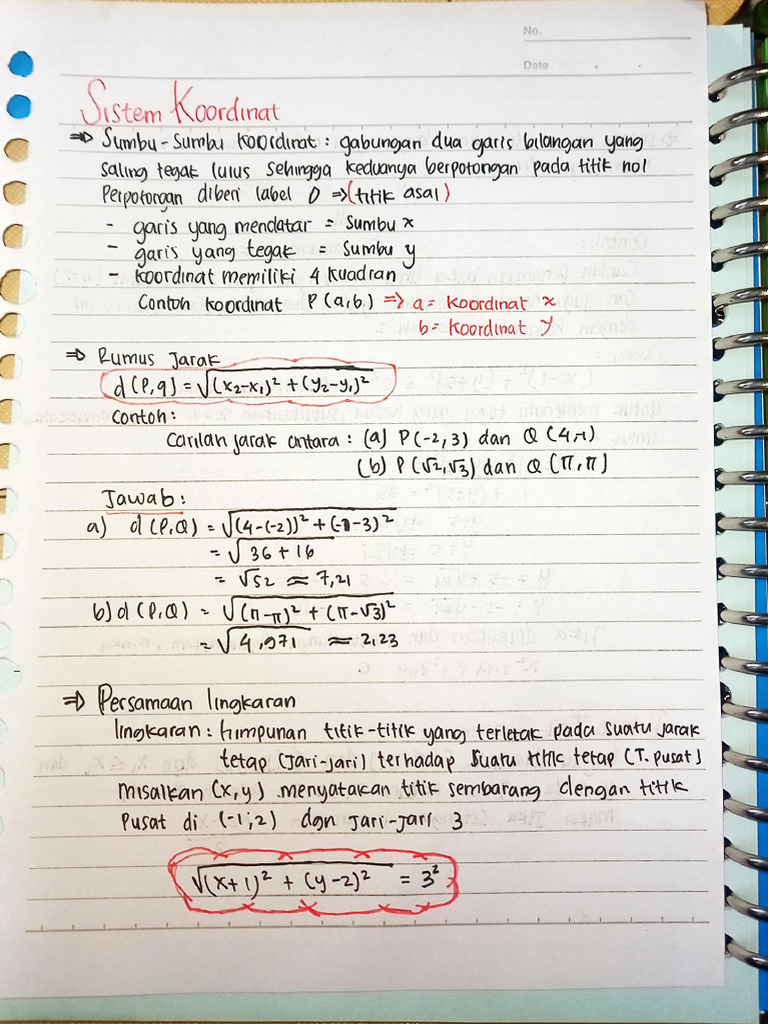 No.
Date
Sistem Koordinat
⇒ Sumbu-Sumbu Koordinat : gabungan dua garis bilangan yang
saling tegak lulus sehingga keduanya berpotongan pada titik nol
Perpotongan diberi label O ⇒ (titik asal)
- garis yang mendatar = Sumbu x
- garis yang tegak = Sumbu y
- koordinat memiliki 4 kuadran
Contoh koordinat P(a,b) ⇒ a = koordinat x
b = koordinat y
⇒ Rumus Jarak
d(P,q) = √(x₂-x₁)² + (y₂-y₁)²
Contoh:
Carilah jarak antara : (a) P(-2,3) dan Q(4,-1)
(b) P(√2,√3) dan Q(π,π)
Jawab:
a) d(P,Q) = √(4-(-2))² + (-1-3)²
= √36 + 16
= √52 ≈ 7,21
b) d(P,Q) = √(π-π)² + (π-√3)²
= √4,971 ≈ 2,23
⇒ Persamaan lingkaran
lingkaran : himpunan titik-titik yang terletak pada suatu jarak
tetap (Jari-jari) terhadap suatu titik tetap (T. pusat)
misalkan (x,y) menyatakan titik sembarang dengan titik
pusat di (-1;2) dgn jari-jari 3
√(x+1)² + (y-2)² = 3²